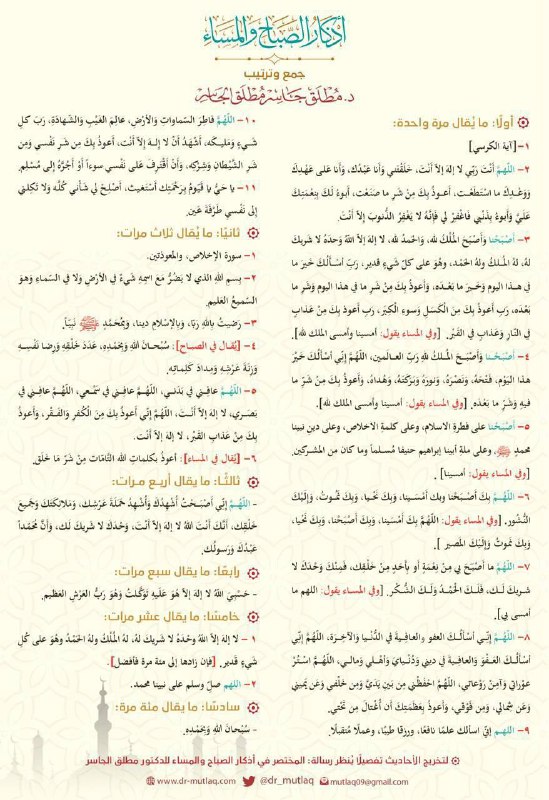 أذكار الصباح والمساء
جمع وترتيب
د. مطلق جاسر مطلق الجاسر
أولًا: ما يُقال مرة واحدة:
١- [آية الكرسي]
٢- اللَّهُمَّ أَنْتَ رَبِّي لا إلهَ إلاَّ أنْتَ، خَلَقْتَني وأنا عَبْدُك، وَأنا على عَهْدِكَ
وَوَعْدِكَ ما اسْتَطَعْت، أَعُوذُ بِكَ مِنْ شَرِ ما صَنَعْت، أبوءُ لَكَ بِنِعْمَتِكَ
عَلَيَّ وَأبوءُ بِذَنْبي فاغْفِرْ لي فَإِنَّهُ لا يَغْفِرُ الذُّنوبَ إلاَّ أَنْتَ
٣- أَصْبَحْنا وَأَصْبَحَ المُلْكُ لله، وَالحَمدُ لله، لا إلهَ إلاّ اللّهُ وَحدَهُ لا شَريكَ
لهُ، لهُ المُلكُ ولهُ الحَمْد، وهُوَ على كلّ شَيءٍ قدير، رَبِّ أسْأَلُكَ خَيرَ ما
في هذا اليوم وَخَيرَ ما بَعْدَه، وَأَعوذُ بِكَ مِنْ شَرِّ ما في هذا اليوم وَشَرِّ ما
بَعْدَه، رَبِّ أَعوذُ بِكَ مِنَ الْكَسَلِ وَسوءِ الْكِبَر، رَبِّ أَعوذُ بِكَ مِنْ عَذابٍ
في النّارِ وَعَذابٍ في القَبْر. [وفي المساء يقول: أمسينا وأمسى الملك لله].
٤- أَصْبَحْنا وَأَصْبَحَ المُلكُ للهِ رَبِّ العـالَمين، اللّهُمَّ إِنِّي أسْأَلُكَ خَيْرَ
هذا اليَوْم، فَتْحَهُ، وَنَصْرَهُ، وَنورَهُ وَبَرَكَتَهُ، وَهُداهُ، وَأَعوذُ بِكَ مِنْ شَرِّ ما
فيهِ وَشَرِّ ما بَعْدَه. [وفي المساء يقول: أمسينا وأمسى الملك لله].
٥- أَصْبَحْنا على فطرة الإسلام، وعلى كلمة الإخلاص، وعلى دين نبينا
محمد ﷺ وعلى ملة أبينا إبراهيم حنيفا مُسلماً وما كان من المشركين.
[وفي المساء يقول: أمسينا].
٦- اللّهُمَّ بِكَ أَصْبَحْنا وبك أَمْسَينا، وَبِكَ نَحْيا، وَبِكَ نَمُوتُ، وَإِلَيْكَ
النُّشُور. [وفي المساء يقول: اللّهُمَّ بِكَ أَمْسَينا، وَبِكَ أَصْبَحْنا، وَبِكَ نَحْيا،
وَبِكَ نَموتُ وَإِلَيْكَ المَصير].
٧- اللّهُمَّ ما أَصْبَحَ بي مِنْ نِعْمَةٍ أو بِأحَدٍ مِنْ خَلْقِك، فَمِنْكَ وَحْدَكَ لا
شريكَ لك، فَلَكَ الْحَمْدُ وَلَكَ الشُّكْر. [وفي المساء يقول: اللهم ما
أمسى بي].
٨- اللّهُمَّ إِنِّي أسْأَلُكَ العفو والعافِيةَ في الدُّنْيا وَالآخِـرَة، اللّهُمَّ إِنِّي
أسْأَلُكَ العَفْوَ وَالعافِيةَ في ديني وَدُنْيايَ وَأهْلي وَمالـي، اللّهُمَّ اسْتُرْ
عوْراتي وَآمِنْ رَوْعاتي، اللّهُمَّ احْفَظْني مِن بَينِ يَدَيَّ وَمِن خَلْفي وَعَن يَميني
وَعَن شِمالي، وَمِن فَوْقي، وَأَعوذُ بِعَظَمَتِكَ أَن أُغْتالَ مِن تَحْتي.
٩- اللّهُمَّ إِنِّي أسألك علمًا نافعًا، ورزقًا طيبًا، وعملًا متقبلًا.
١٠- اللَّهُمَّ فاطِرَ السَّماواتِ وَالأرْضِ، عالِمَ الغَيْبِ وَالشَّهادَةِ، رَبَّ كلِّ
شَيءٍ وَمَليكَه، أَشْهَدُ أَنْ لا إِلـهَ إِلاّ أَنْت، أَعوذُ بِكَ مِن شَرِّ نَفْسي وَمِن
شَرِّ الشَّيْطانِ وَشِرْكِه، وَأَنْ أَقْتَرِفَ عَلى نَفْسي سوءاً أَوْ أَجُرَّهُ إِلى مُسْلِم.
١١- يا حَيُّ يا قَيّومُ بِرَحْمَتِكَ أَسْتَغيث، أَصْلِحْ لي شَأني كُلَّه وَلا تَكِلني
إلى نَفْسي طَرْفَةَ عَين.
ثانيًا: ما يُقال ثلاث مرات:
١- سورة الإخلاص، والمعوذتين.
٢- بِسمِ اللهِ الذي لا يَضُرُّ مَعَ اسمِهِ شَيءٌ في الأرْضِ وَلا في السّماءِ وَهوَ
السّميعُ العَليم.
٣- رَضيتُ باللهِ رَبًا، وَبالإسْلامِ دينا، وَبِمُحَمَّدٍ ﷺ نَبِيًّا.
٤- [يُقال في الصباح]: سُبْحـانَ اللهِ وَبِحَمْدِهِ، عَدَدَ خَلْقِه وَرِضا نَفْسِـهِ
وَزِنَةَ عَرْشِه وَمِدادَ كَلِماتِه.
٥- اللّهُمَّ عافِـني في بَدَني، اللّهُمَّ عافِـني في سَمْـعي، اللّهُمَّ عافِـني في
بَصَـري، لا إلهَ إلاّ أَنْتَ، اللّهُمَّ إِنّي أَعوذُ بِكَ مِنَ الْكُفرِ وَالفَـقْر، وَأَعوذُ
بِكَ مِنْ عَذابِ القَبْر، لا إلهَ إلاّ أَنْتَ.
٦- [يُقال في المساء]: أعوذُ بكلماتِ اللهِ التَّامَّاتِ مِنْ شَرِّ مَا خَلَق.
ثالثًا: ما يقال أربع مرات:
- اللَّهُمَّ إِنِّي أَصْبَـحْتُ أُشْهِدُكَ وَأُشْهِدُ حَمَلَةَ عَرْشِك، وَمَلائِكَتَكَ وَجَمِيعَ
خَلْقِك، أَنَّكَ أَنْتَ اللهُ لا إلهَ إلاّ أَنْت، وَحْدَكَ لا شَريكَ لَك، وَأَنَّ مُحَمَّداً
عَبْدُكَ وَرَسولُك.
رابعًا: ما يقال سبع مرات:
- حَسْبِيَ اللهُ لا إلهَ إلاّ هُوَ عَلَيهِ تَوَكَّلْتُ وَهُوَ رَبُّ العَرْشِ العَظيم.
خامسًا: ما يقال عشر مرات:
١- لا إلَهَ إلاّ اللهُ وحْدَهُ لا شَريكَ لهُ، لهُ المُلْكُ ولهُ الحَمْدُ وهُوَ على كُلِّ
شَيءٍ قَدير. [فإن زادها إلى مئة مرة فأفضل].
٢- اللهم صلّ وسلم على نبينا محمد.
سادسًا: ما يقال مئة مرة:
- سُبْحـانَ اللهِ وَبِحَمْدِه.
لتخريج الأحاديث تفصيلًا يُنظر رسالة: المختصر في أذكار الصباح والمساء للدكتور مطلق الجاسر
www.dr-mutlaq.com @dr_mutlaq mutlaq09@gmail.com